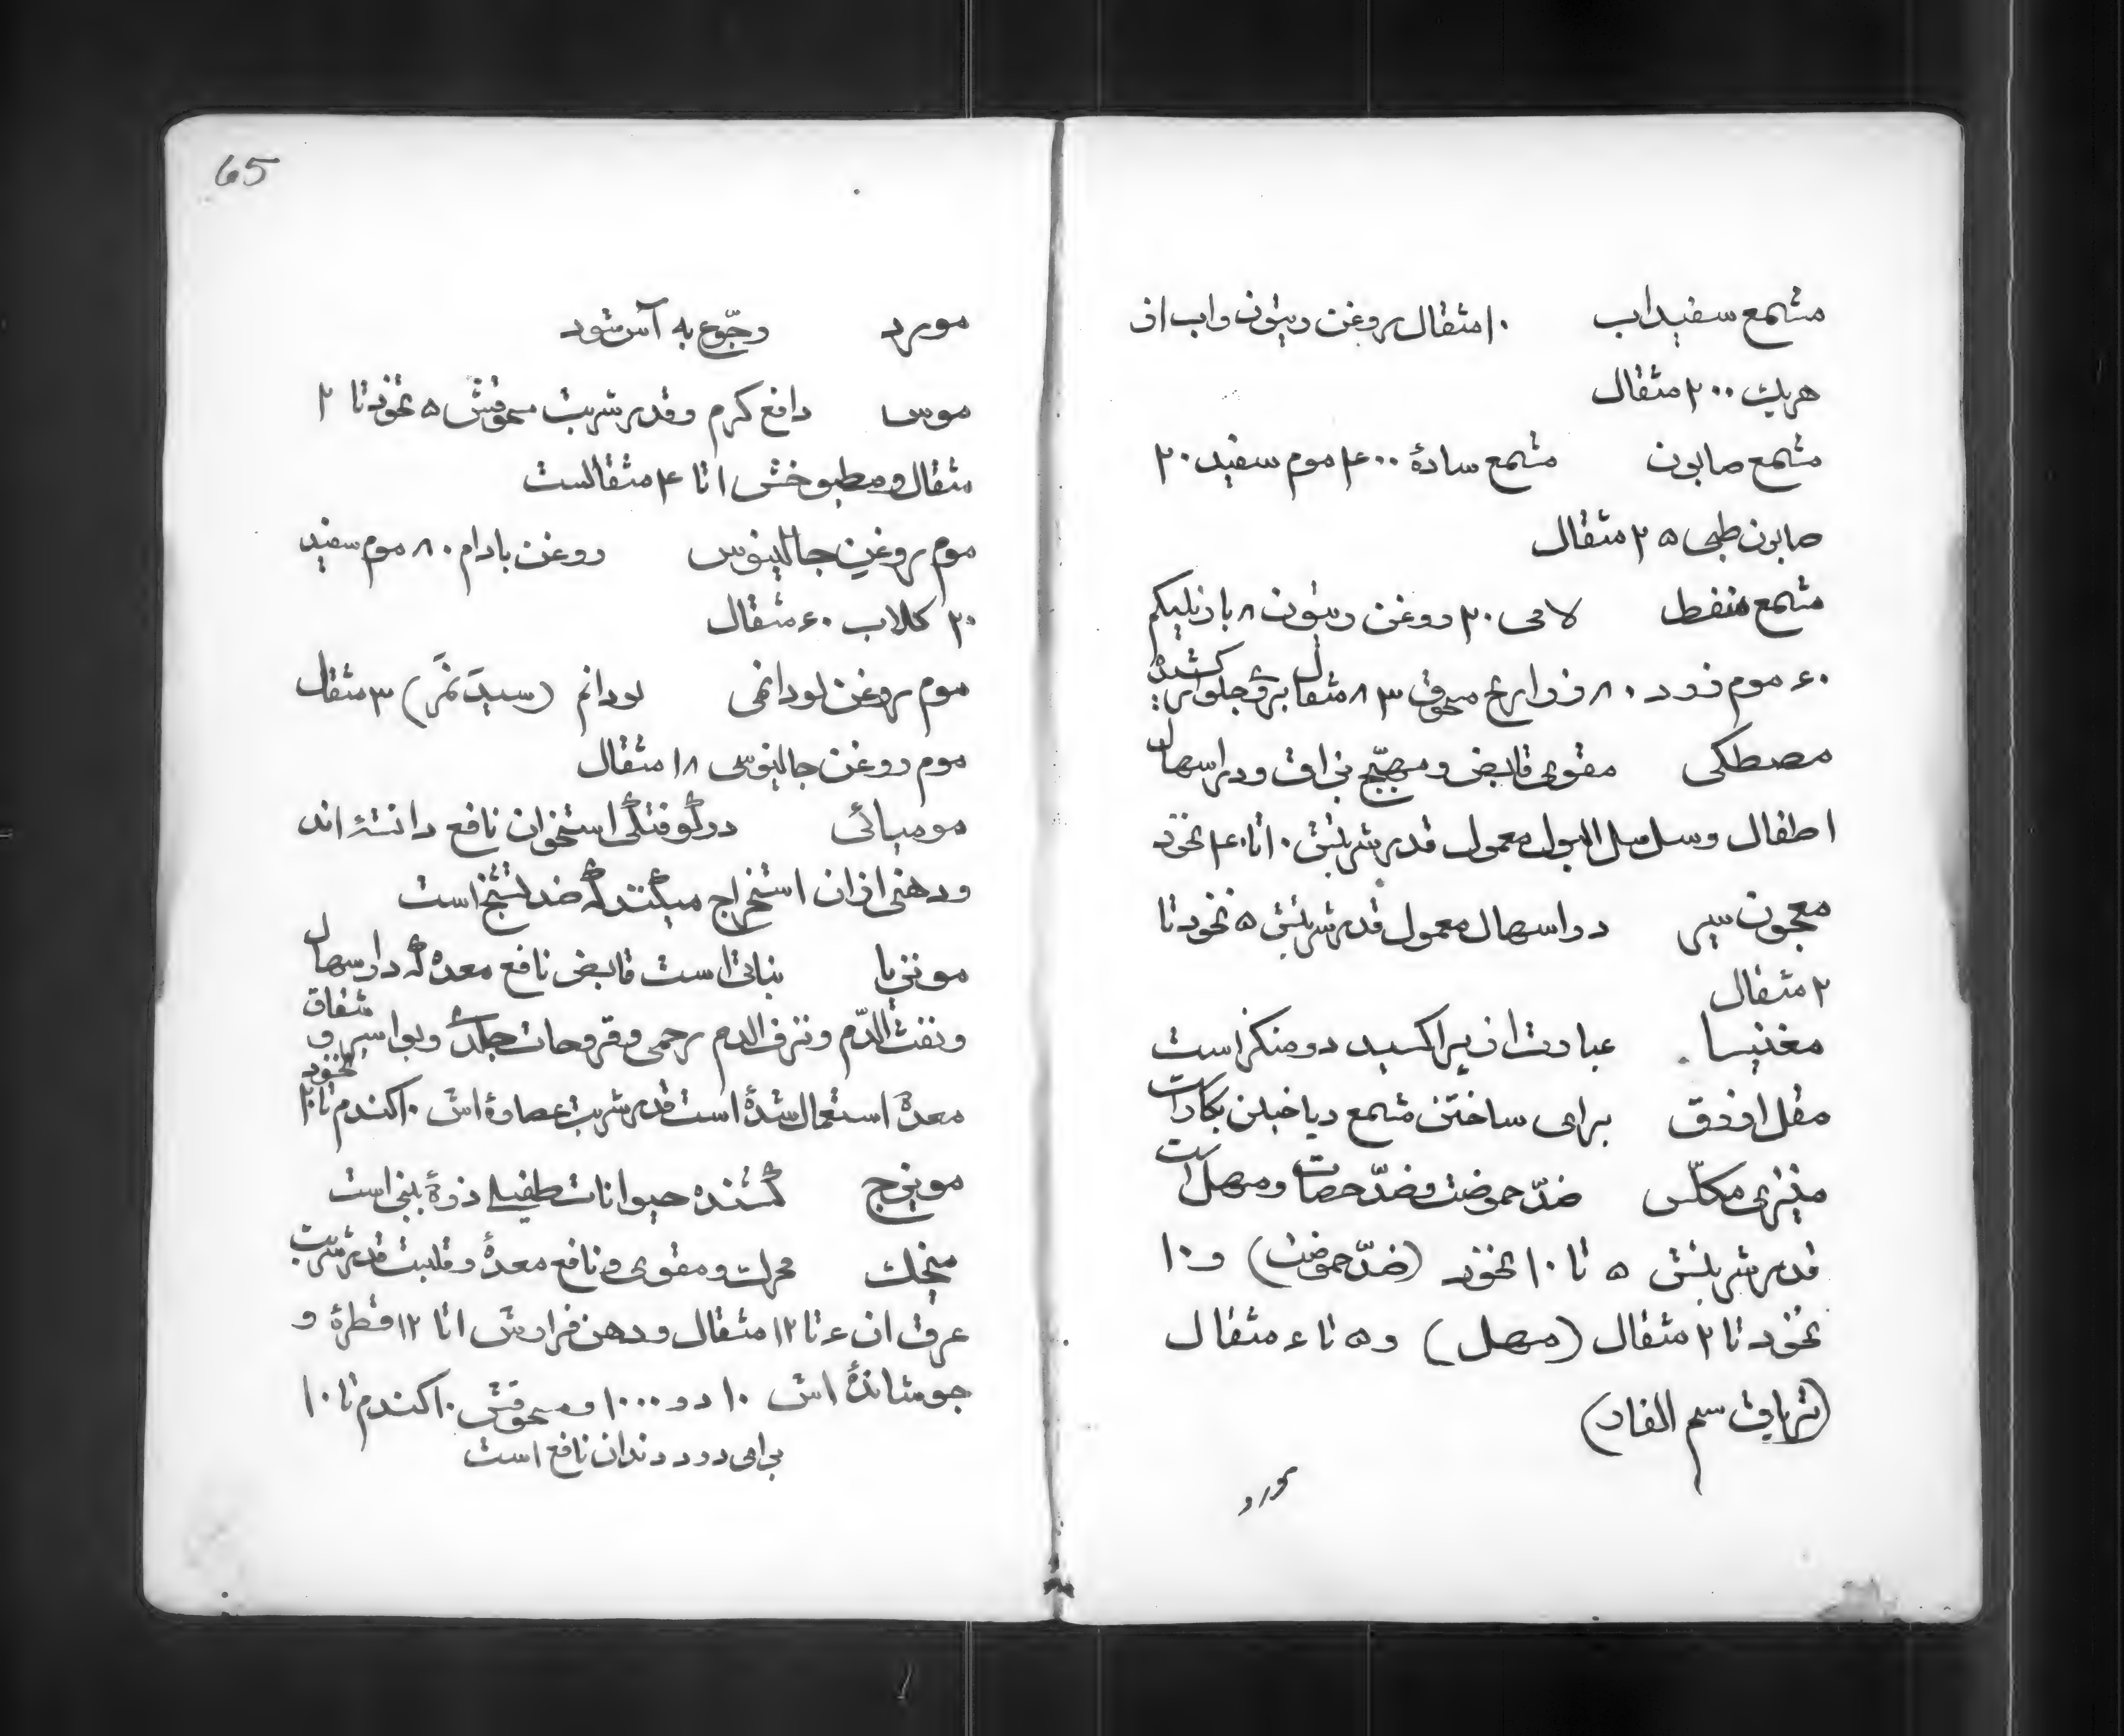 مشمع سفیداب ۱۰ مثقال روغن زیتون و اب از
هریک ۲۰۰ مثقال
مشمع صابون مشمع سادهٔ ۴۰۰ موم سفید ۲۰
صابون طبی ۲۵ مثقال
مشمع منفط لامی ۲۰ روغن زیتون ۸ بازیلیکم
۶۰ موم زرد ۸۰ ذراریح مسحوق ۸۳ مثقال بر روی جلو
مصطکی مقوی قابض و مهیّج بزاق و در اسهال
اطفال و سلسل البول معمول قدر شربتش ۱۰ تا ۴۰ نخود
معجون سیر در اسهال معمول قدر شربتش ۵ نخود تا
۲ مثقال
مغنیسا عبارت از پراکسید دو منکنز است
مقل ازرق برای ساختن مشمع دیاخیلن بکار است
منیزی مکلّس ضدّ حموضت و ضدّ حصات و مسهل است
قدر شربتش ۵ تا ۱۰ نخود (ضدّ حموضت) و ۱۰
نخود تا ۲ مثقال (مسهل) و ۵ تا ۶ مثقال
(تریاق سم الفار)
مورد
65
مورد رجّوع به آس شود
موس دافع کرم و قدر شربت مسحوقش ۵ نخود تا ۲
مثقال و مطبوخش ۱ تا ۴ مثقالست
موم روغن جالینوس روغن بادام ۸۰ موم سفید
۲۰ کلاب ۶۰ مثقال
موم روغن لودانمی لودانم (سیدَنمَ) ۳ مثقال
موم روغن جالینوسی ۱۸ مثقال
مومیائی در کوفتکی استخوان نافع دانستهٔ اند
و دهنی از ان استخراج میکنند که ضد تشنج است
مونزیا نباتی است قابض نافع معده که در اسهال
و نفث الدّم و نزف الدم رحمی و قروحات جلد و بواسیر و شقاق
معدهٔ استعمال شدهٔ است قدر شربت عصارهٔ اش ۱۰ کندم تا ۲۰ نخود
مویزج کشنده حیوانات طفیلی ذروهٔ بینی است
میخک محرک و مقوی و نافع معدهٔ و قلبست قدر شربت
عرق ان ۶ تا ۱۲ مثقال و دهن فرارش ۱ تا ۱۲ قطرهٔ و
جوشاندهٔ اش ۱۰ در ۱۰۰۰ و مسحوقش ۱۰ کندم تا ۱۰
برای درد دندان نافع است